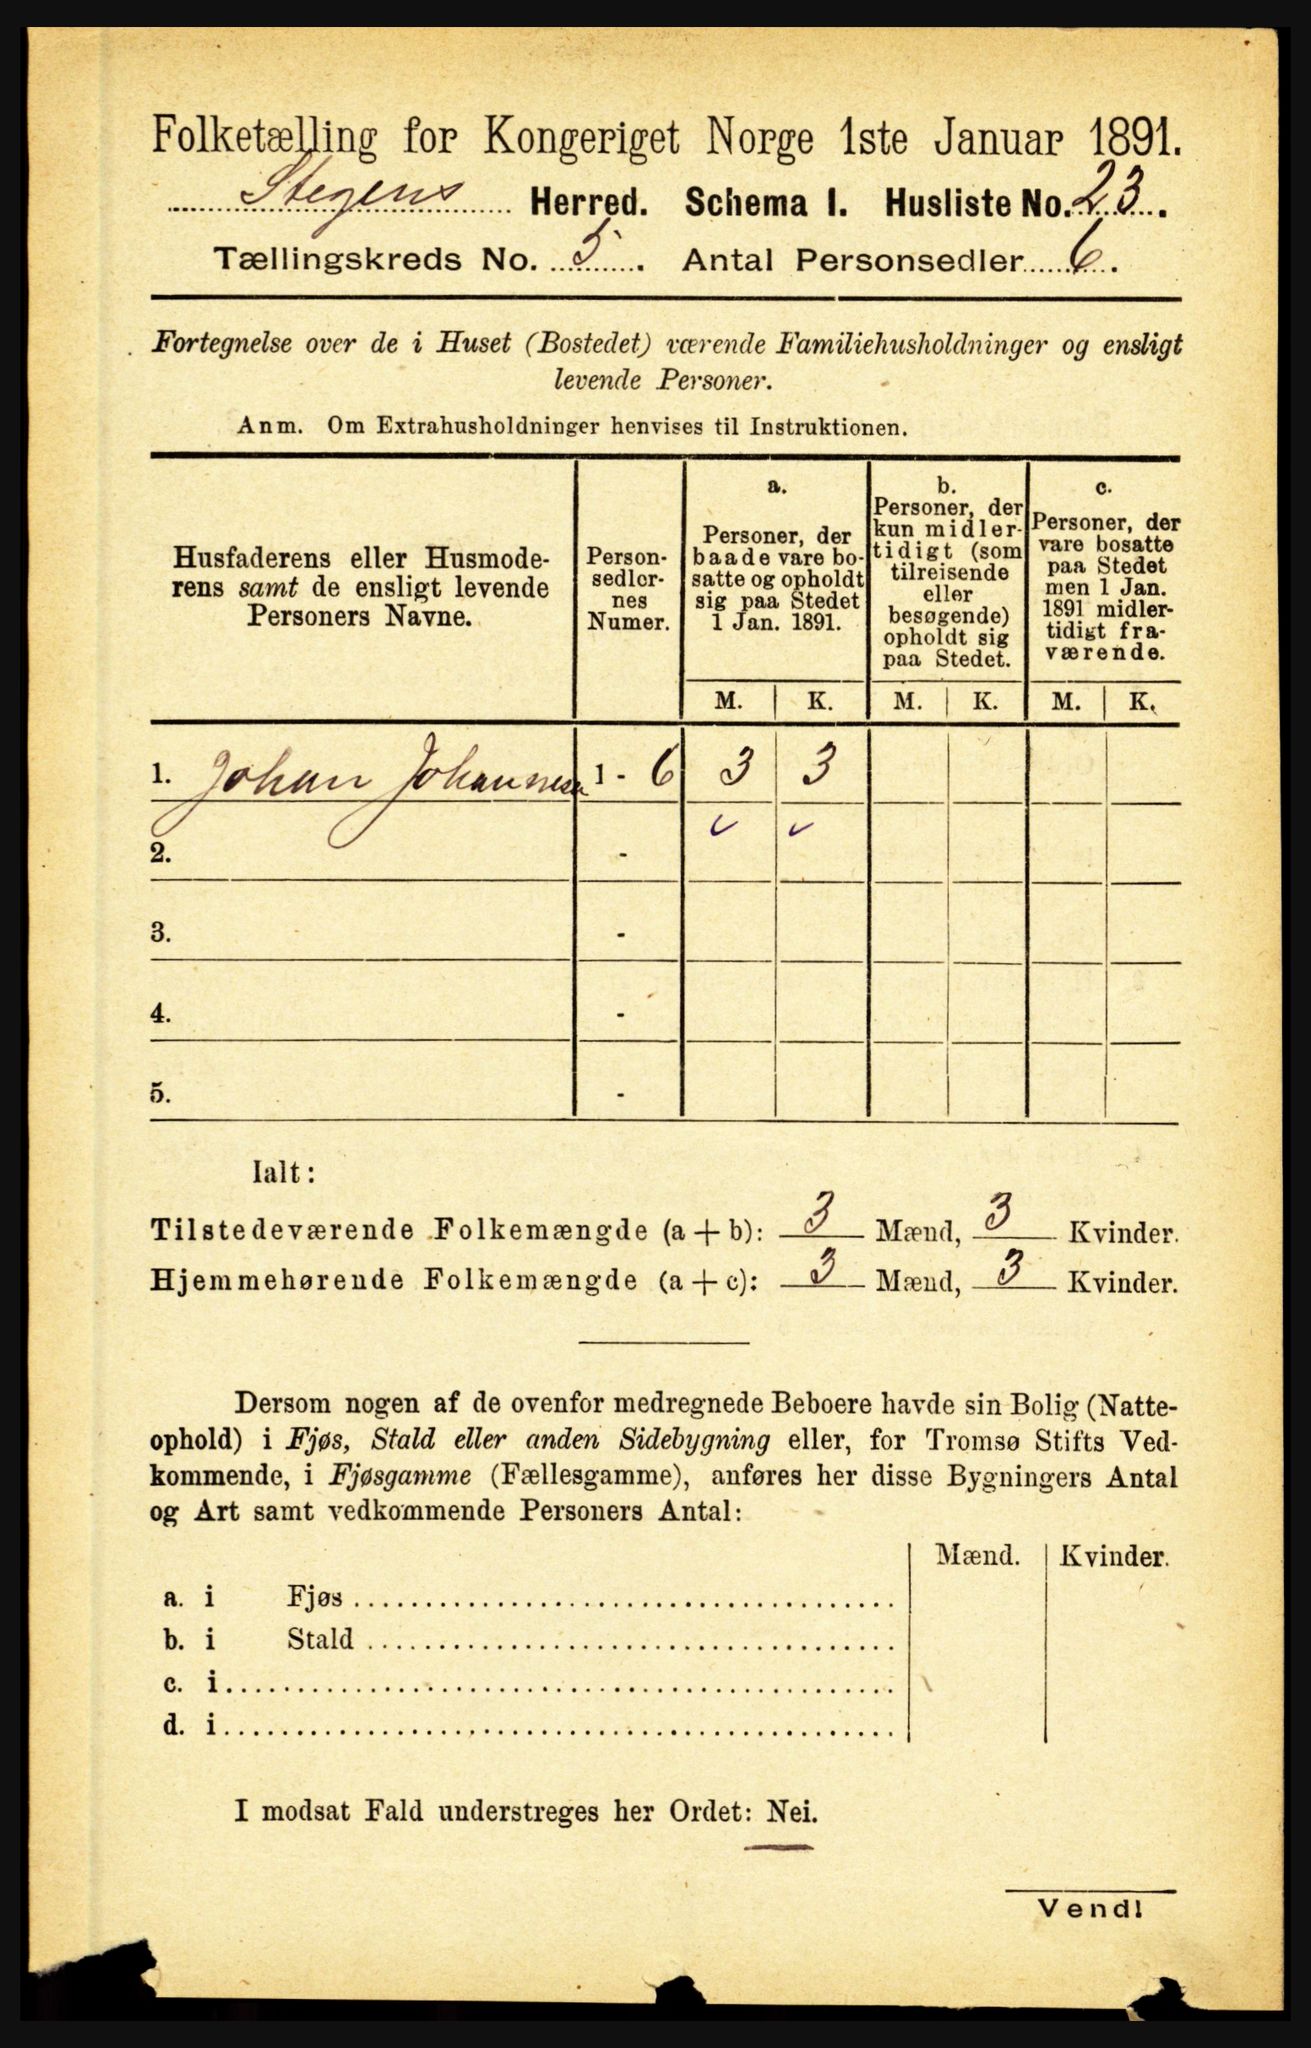 Folketælling for Kongeriget Norge 1ste Januar 1891.
Stegens Herred. Schema I. Husliste No. 23.
Tællingskreds No. 5. Antal Personsedler 6.
Fortegnelse over de i Huset (Bostedet) værende Familiehusholdninger og ensligt
levende Personer.
Anm. Om Extrahusholdninger henvises til Instruktionen.
Husfaderens eller Husmode-
rens samt de ensligt levende
Personers Navne.
Person-
sedler-
nes
Numer.
a.
Personer, der
baade vare bo-
satte og opholdt
sig paa Stedet
1 Jan. 1891.
b.
Personer, der
kun midler-
tidigt (som
tilreisende
eller
besøgende)
opholdt sig
paa Stedet.
c.
Personer, der
vare bosatte
paa Stedet
men 1 Jan.
1891 midler-
tidigt fra-
værende.
M. K. M. K. M. K.
1. Johan Johannesen 1 - 6 3 3
2. -
3. -
4. -
5. -
Ialt:
Tilstedeværende Folkemængde (a + b): 3 Mænd, 3 Kvinder.
Hjemmehørende Folkemængde (a + c): 3 Mænd, 3 Kvinder.
Dersom nogen af de ovenfor medregnede Beboere havde sin Bolig (Natte-
ophold) i Fjøs, Stald eller anden Sidebygning eller, for Tromsø Stifts Ved-
kommende, i Fjøsgamme (Fællesgamme), anføres her disse Bygningers Antal
og Art samt vedkommende Personers Antal:
Mænd. Kvinder.
a. i Fjøs
b. i Stald
c. i
d. i
I modsat Fald understreges her Ordet: Nei.
Vend!